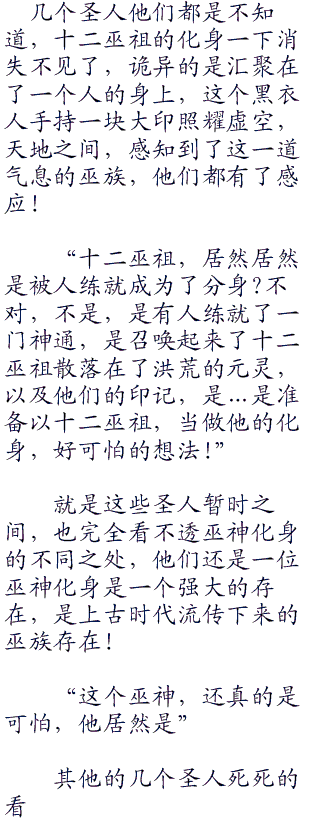 几个圣人他们都是不知
道，十二巫祖的化身一下消
失不见了，诡异的是汇聚在
了一个人的身上，这个黑衣
人手持一块大印照耀虚空，
天地之间，感知到了这一道
气息的巫族，他们都有了感
应！
“十二巫祖，居然居然
是被人练就成为了分身?不
对，不是，是有人练就了一
门神通，是召唤起来了十二
巫祖散落在了洪荒的元灵，
以及他们的印记，是…是准
备以十二巫祖，当做他的化
身，好可怕的想法！”
就是这些圣人暂时之
间，也完全看不透巫神化身
的不同之处，他们还是一位
巫神化身是一个强大的存
在，是上古时代流传下来的
巫族存在！
“这个巫神，还真的是
可怕，他居然是”
其他的几个圣人死死的
看